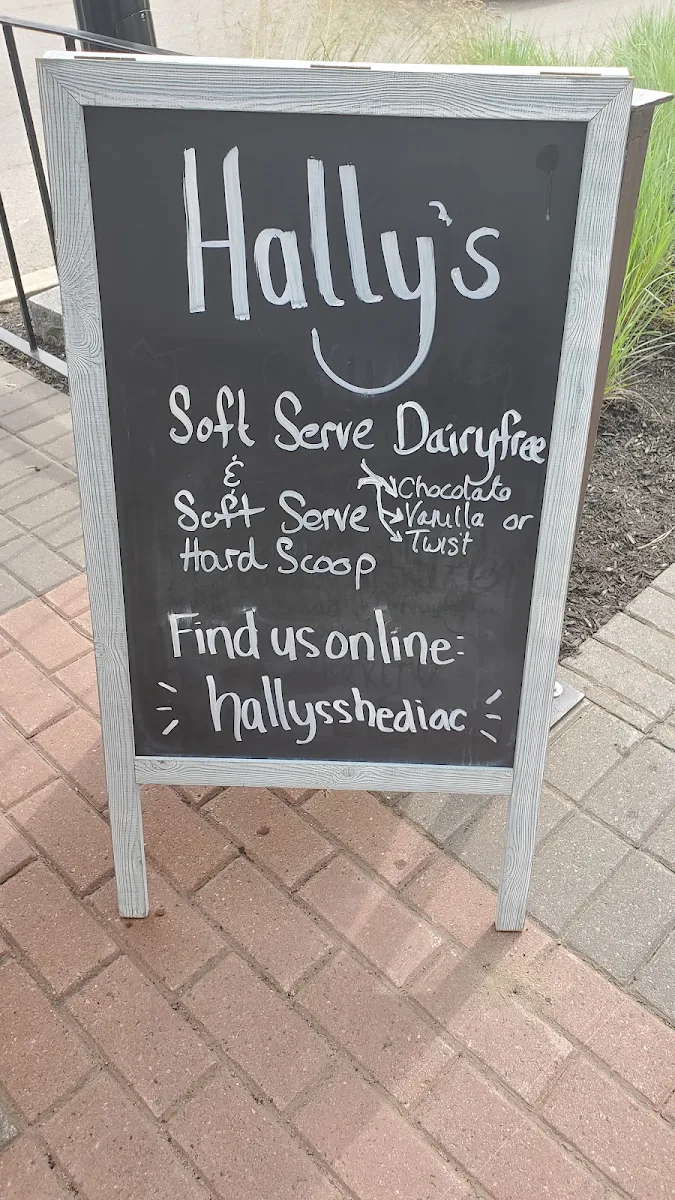 Hally's
Soft Serve Dairyfree
&
Soft Serve
Chocolate
Vanilla or
Twist
Hard Scoop
Find us online:
hallysshediac